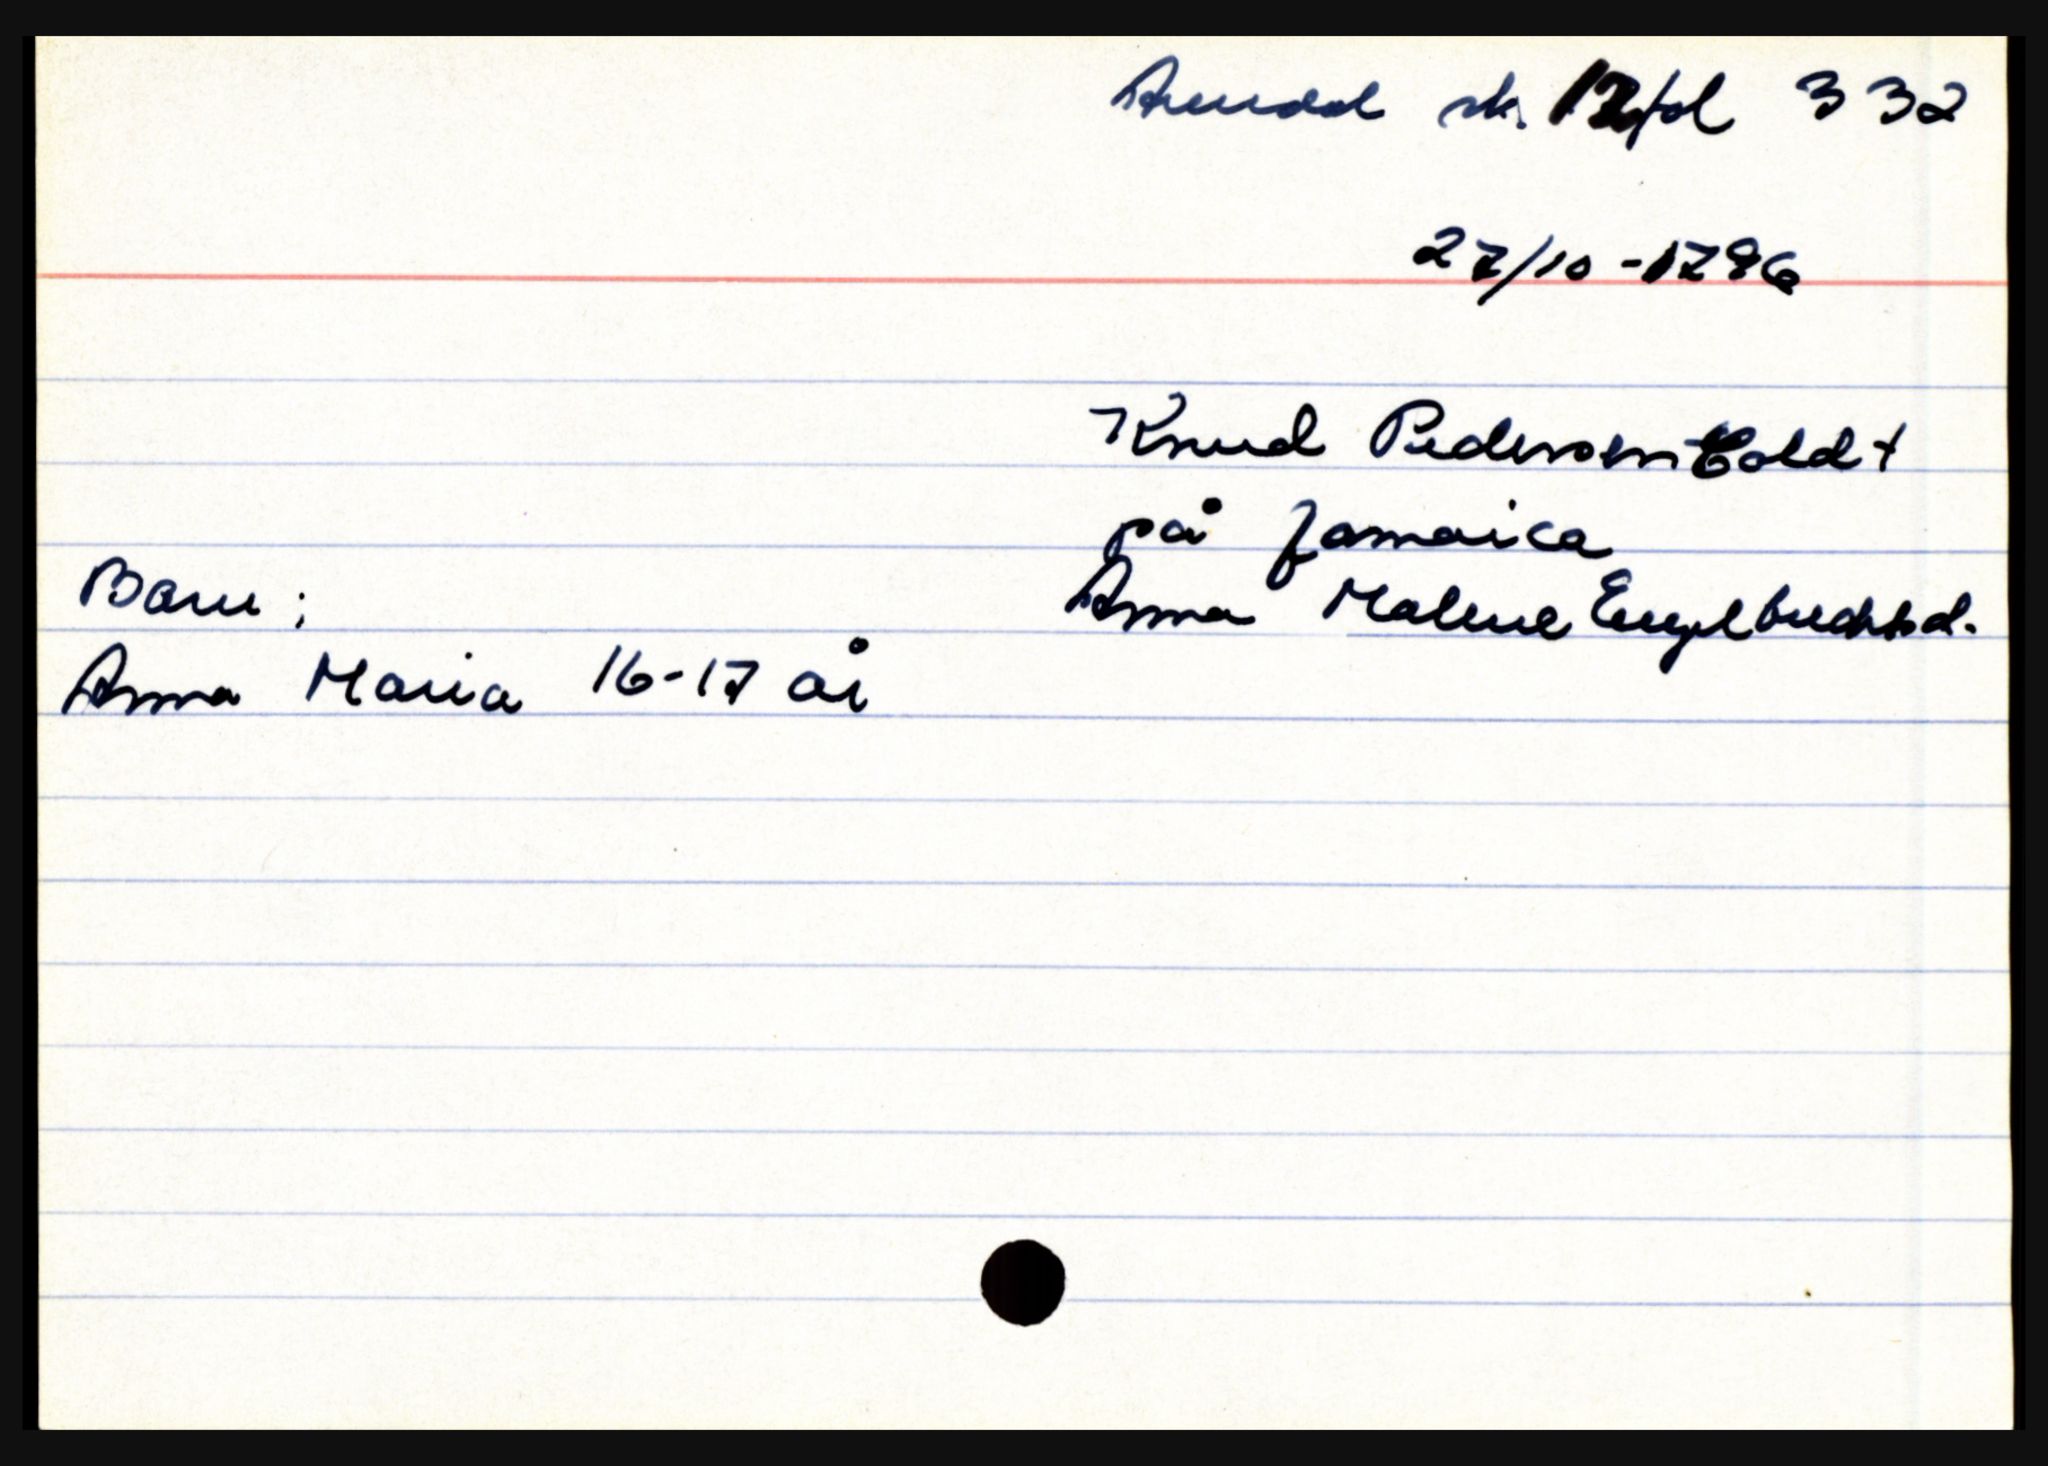 Arendal sk. 12 fol 332
27/10 - 1796
Knud Pedersen Coldt
på Jamaica
Anna Malene Engelbrechtsd.
Barn:
Anna Maria 16-17 år